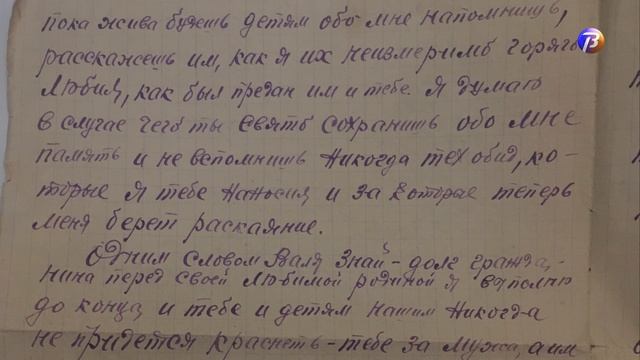 пока жива будешь детям обо мне напомнишь,
расскажешь им, как я их неизмеримо горячо
любил, как был предан им и тебе. Я думаю
в случае чего ты свято сохранишь обо мне
память и не вспомнишь никогда тех обид, ко-
торые я тебе наносил, и за которые теперь
меня берет раскаяние.
Одним словом Валя знай - долг гражда-
нина перед своей любимой родиной я выполню
до конца, и тебе и детям нашим никогда
не придется краснеть - тебе за мужа, а им